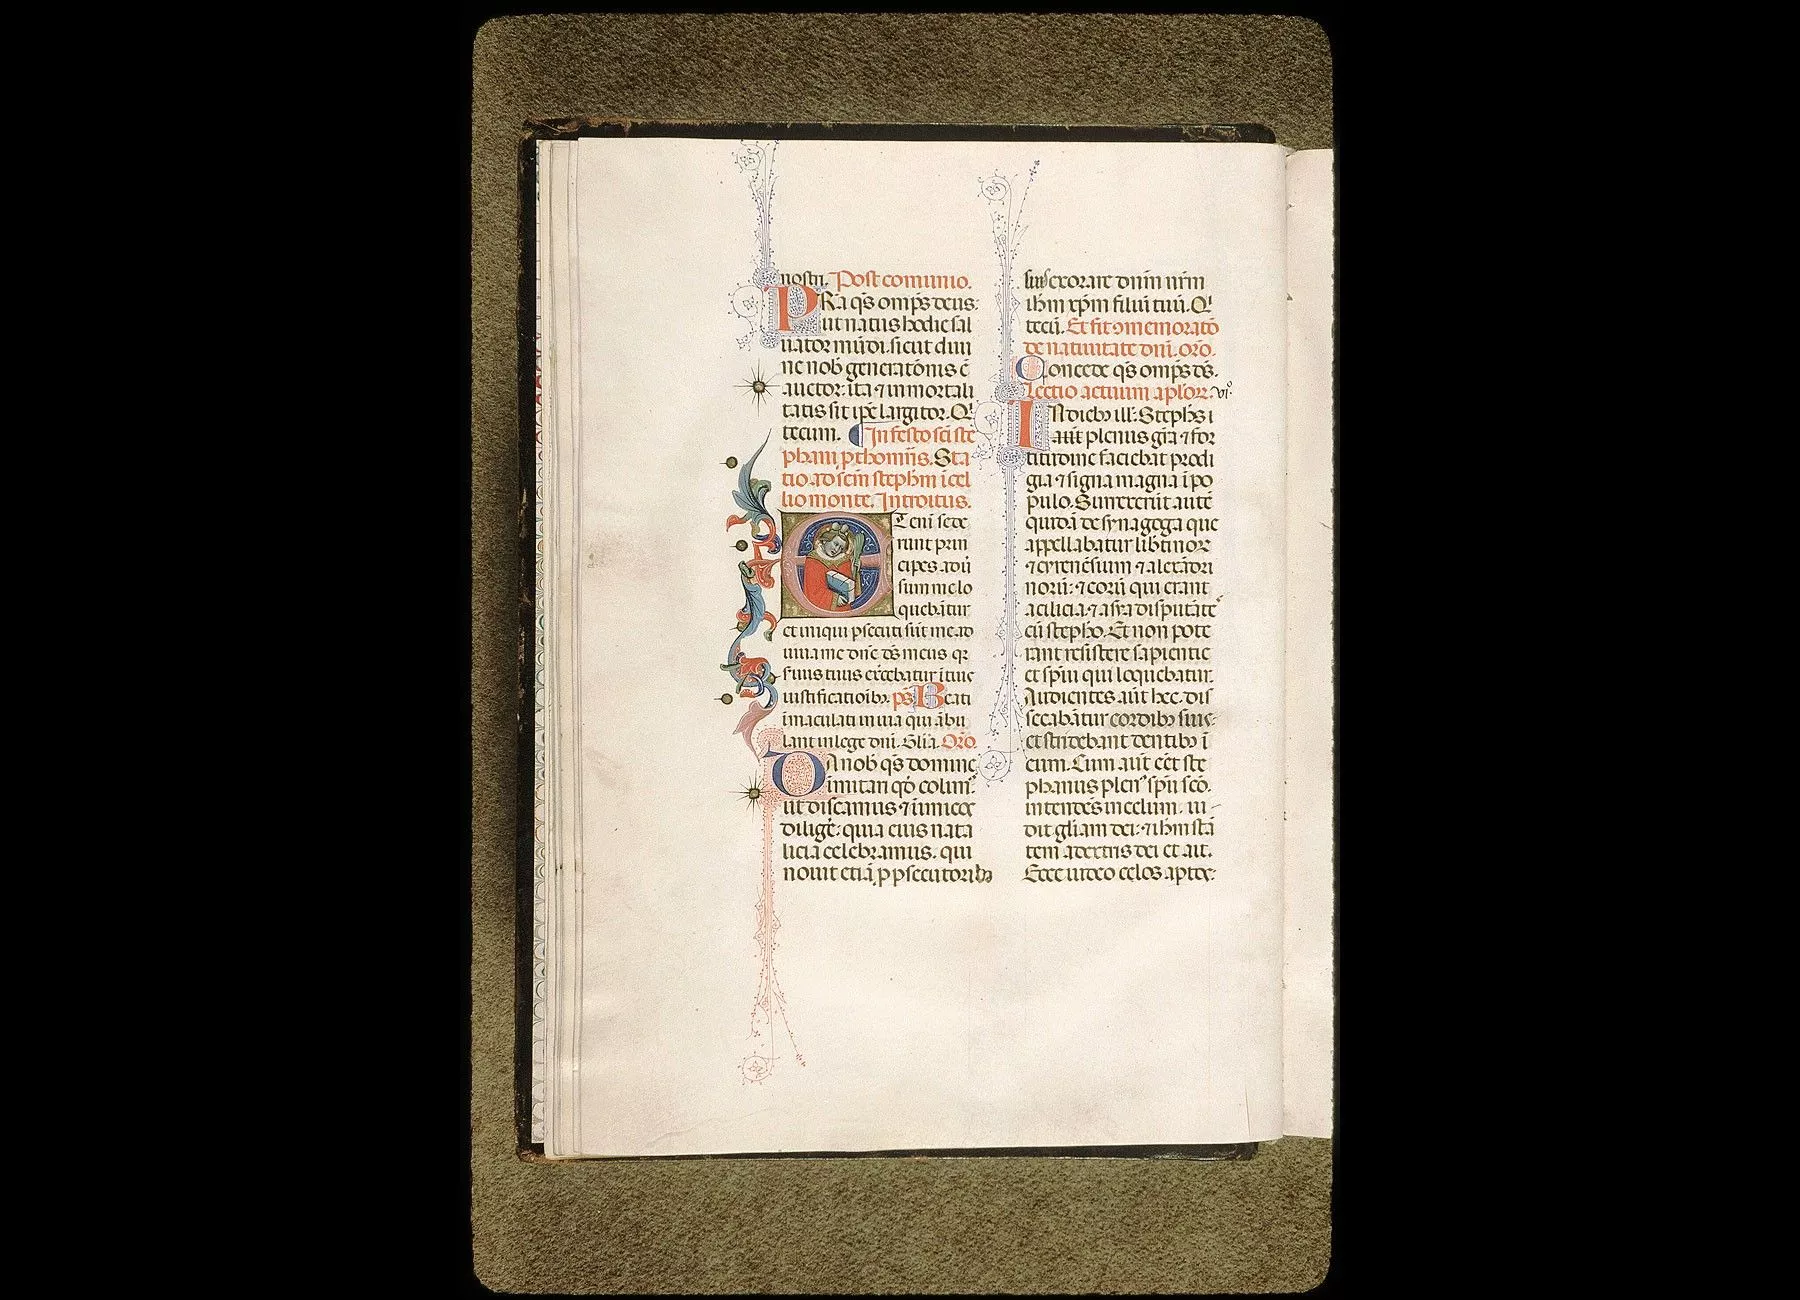 nostri. Post comunio.
PRa qs omps deus:
ut natus hodie sal
uator mūdi. sicut diui
ne nob generatōnis ē
auctor: ita ⁊ inmortali
tatis sit ipē largitor. Q'
tecum. In festo sci ste
phani pthomris. Sta
tio ad scm stephm i cel
lio monte. Introitus.
ETeni sede
runt prin
cipes adū
sum me lo
quebātur
et iniqui psecuti sūt me ad
iuua me dne ds meus qr
suus tuus exercebatur i tuis
iustificatioibz. ps Beati
imaculati in uia qui ābu
lant in lege dni. Glia. Oro.
DA nob qs domine
imitari qd colim'
ut discamus ⁊ inimicos
diligē: quia eius nata
licia celebramus. qui
nouit etiā p psecutoribz
exorare dnm nrm
ihm xpm filiū tuū. Q'
tecū. Et fit 9memoratō
de natiuitate dni. oro.
Concede qs omps ds.
Lectio actuum aplor. vi°
IN diebz ill. Stephs
aut plenus gra ⁊ for
titudine faciebat prodi
gia ⁊ signa magna i po
pulo. Surrexerūt autē
quidā de synagoga que
appellabatur libtinorz
⁊ cyrenēsium ⁊ alexādri
norū: ⁊ eorū qui erant
a cilicia ⁊ asya disputātes
cū stepho. Et non pote
rant resistere sapientie
et spiu qui loquebatur.
Audientes aūt hec. dis
secabātur cordibz suis
et stridebant dentibz i
eum. Cum aūt eēt ste
phanus plen' spu sco.
intendēs in celum. ui
dit gliam dei: ⁊ ihm stā
tem a dextris dei et ait.
Ecce uideo celos aptos: